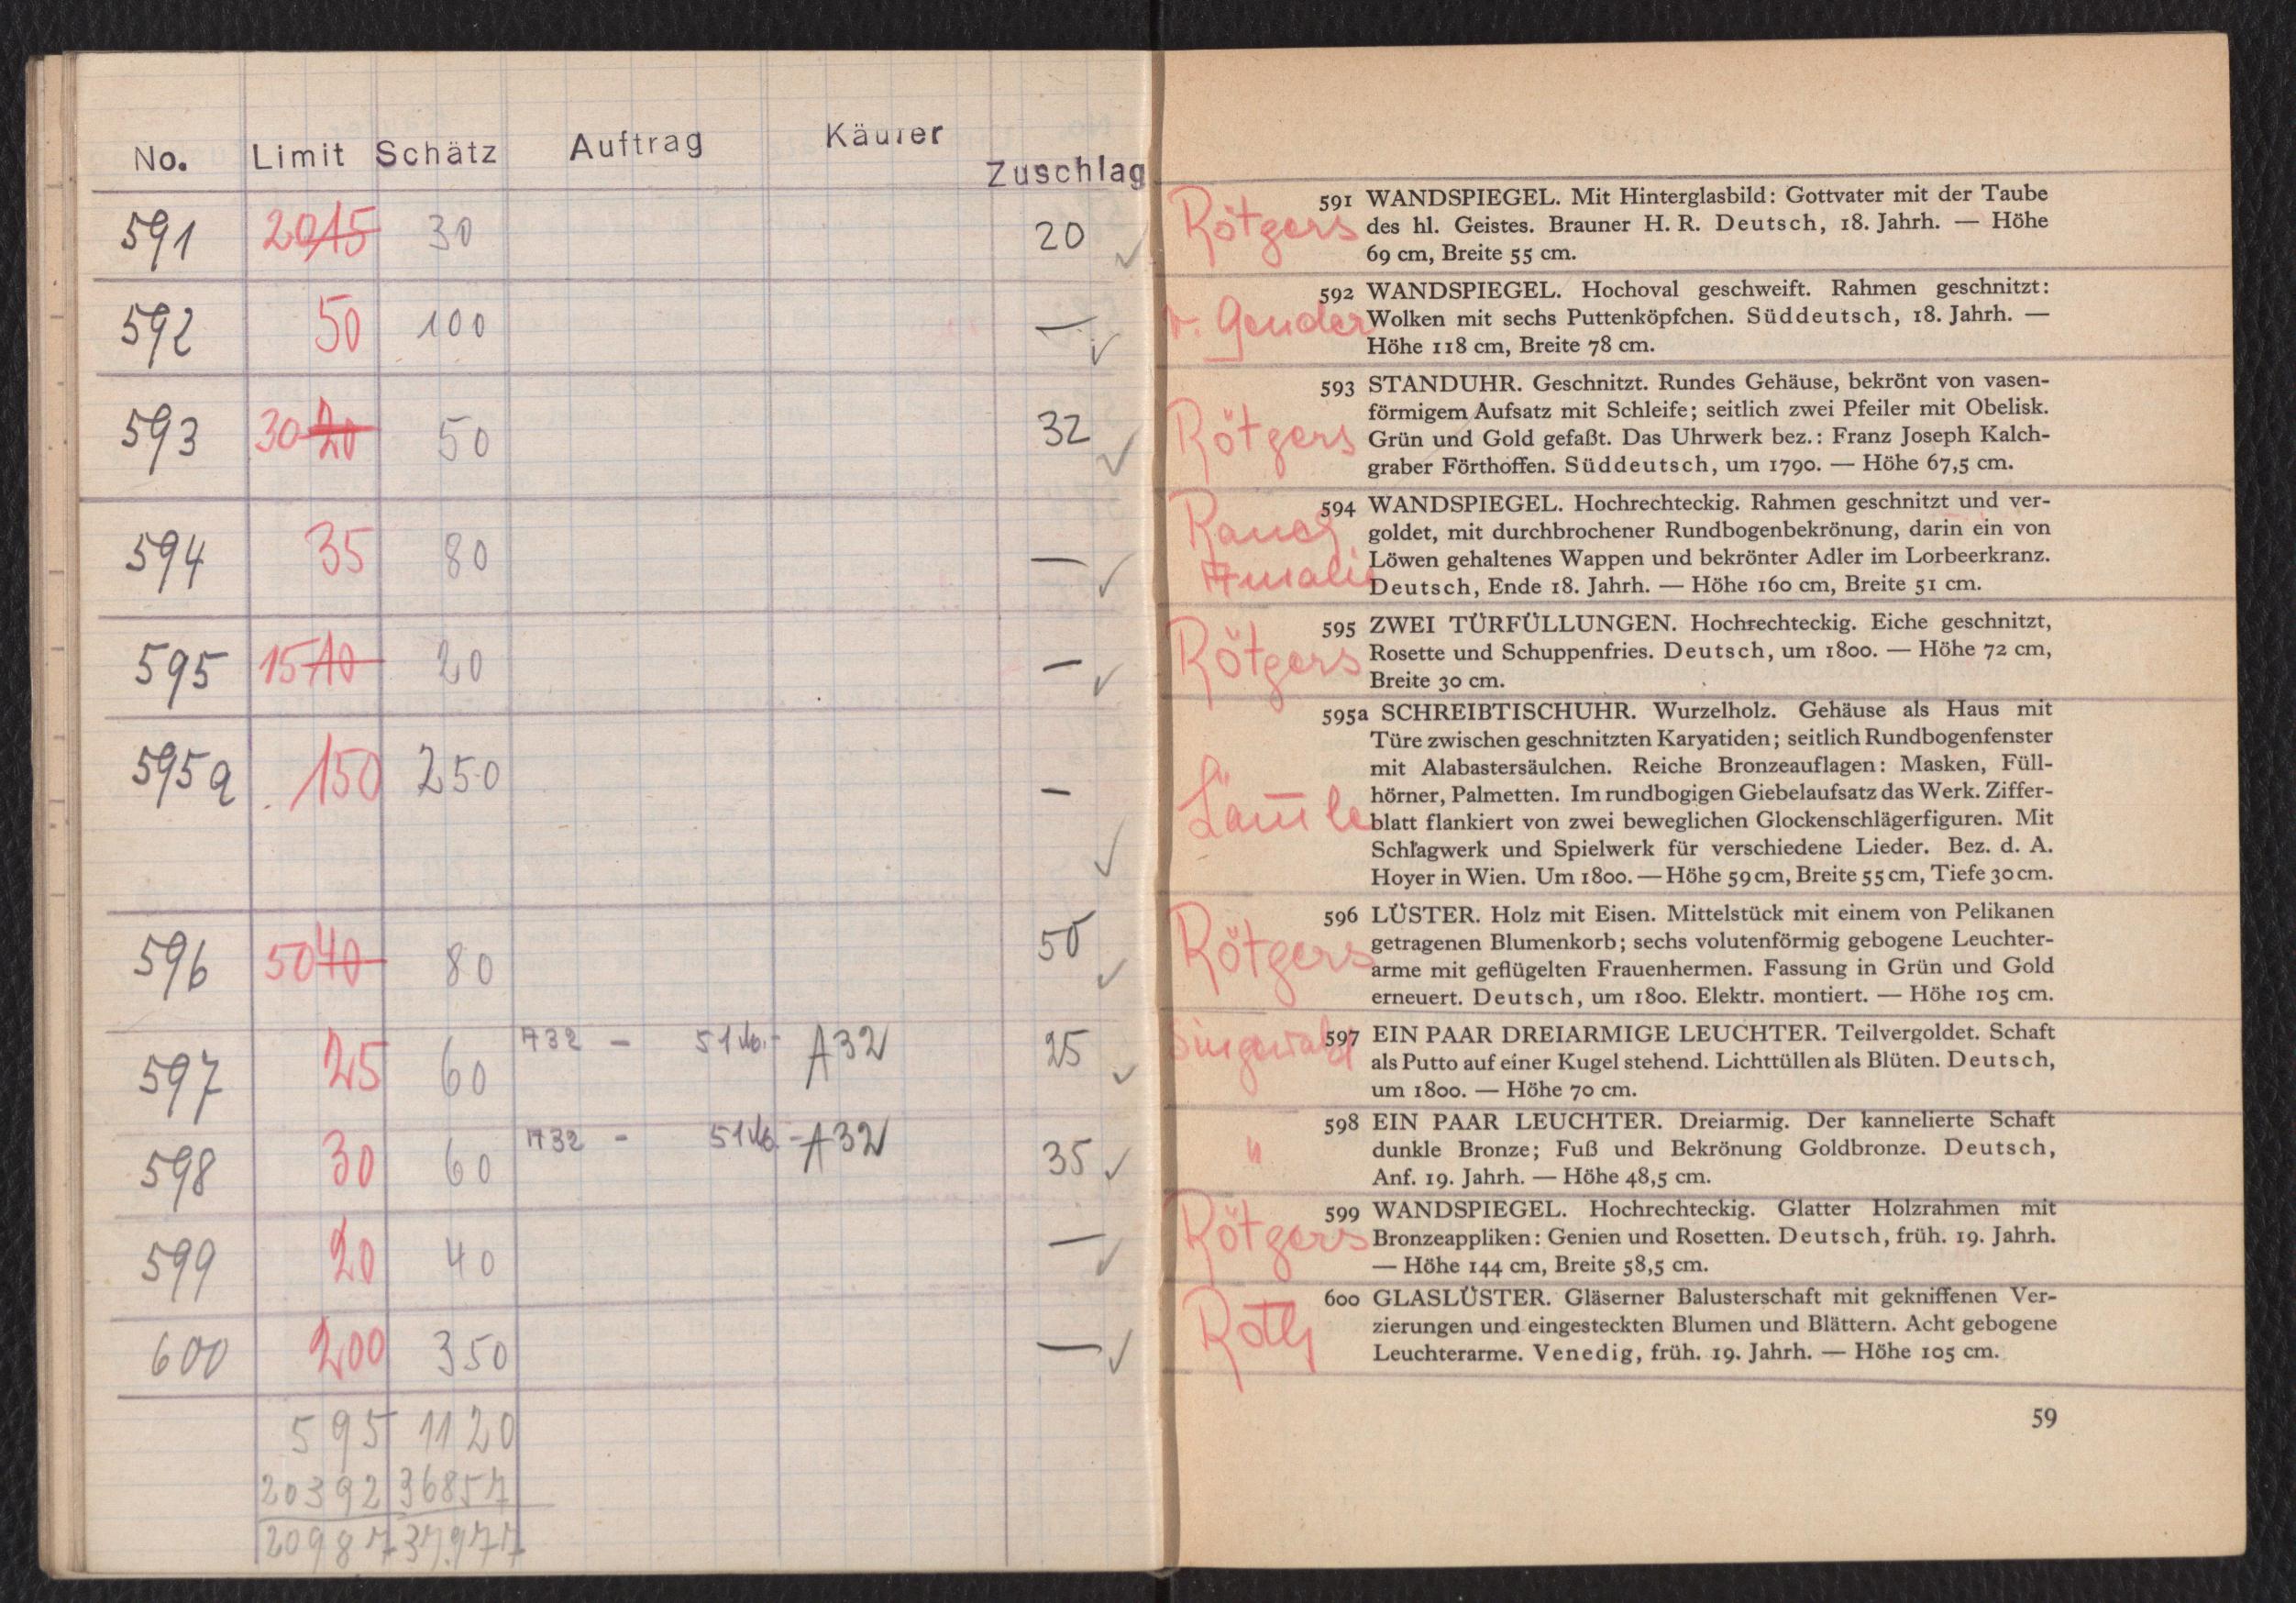 No. Limit Schätz Auftrag Käufer Zuschlag
591 20 15 30 20 ✓
592 50 100 — ✓
593 30 20 50 32 ✓
594 35 80 — ✓
595 15 10 20 — ✓
595a 150 250 — ✓
596 50 40 80 50 ✓
597 25 60 A32 — 51 A32 25 ✓
598 30 60 A32 — 51 A32 35 ✓
599 20 40 — ✓
600 200 350 — ✓
595 1120
20392 36857
20987 37.977
Rötgers
591 WANDSPIEGEL. Mit Hinterglasbild: Gottvater mit der Taube
des hl. Geistes. Brauner H. R. Deutsch, 18. Jahrh. — Höhe
69 cm, Breite 55 cm.
v. Gender
592 WANDSPIEGEL. Hochoval geschweift. Rahmen geschnitzt:
Wolken mit sechs Puttenköpfchen. Süddeutsch, 18. Jahrh. —
Höhe 118 cm, Breite 78 cm.
Rötgers
593 STANDUHR. Geschnitzt. Rundes Gehäuse, bekrönt von vasen-
förmigem Aufsatz mit Schleife; seitlich zwei Pfeiler mit Obelisk.
Grün und Gold gefaßt. Das Uhrwerk bez.: Franz Joseph Kalch-
graber Förthoffen. Süddeutsch, um 1790. — Höhe 67,5 cm.
Rauch
Amalie
594 WANDSPIEGEL. Hochrechteckig. Rahmen geschnitzt und ver-
goldet, mit durchbrochener Rundbogenbekrönung, darin ein von
Löwen gehaltenes Wappen und bekrönter Adler im Lorbeerkranz.
Deutsch, Ende 18. Jahrh. — Höhe 160 cm, Breite 51 cm.
Rötgers
595 ZWEI TÜRFÜLLUNGEN. Hochrechteckig. Eiche geschnitzt,
Rosette und Schuppenfries. Deutsch, um 1800. — Höhe 72 cm,
Breite 30 cm.
595a SCHREIBTISCHUHR. Wurzelholz. Gehäuse als Haus mit
Türe zwischen geschnitzten Karyatiden; seitlich Rundbogenfenster
mit Alabastersäulchen. Reiche Bronzeauflagen: Masken, Füll-
hörner, Palmetten. Im rundbogigen Giebelaufsatz das Werk. Ziffer-
blatt flankiert von zwei beweglichen Glockenschlägerfiguren. Mit
Schlagwerk und Spielwerk für verschiedene Lieder. Bez. d. A.
Hoyer in Wien. Um 1800. — Höhe 59 cm, Breite 55 cm, Tiefe 30 cm.
Rötgers
596 LÜSTER. Holz mit Eisen. Mittelstück mit einem von Pelikanen
getragenen Blumenkorb; sechs volutenförmig gebogene Leuchter-
arme mit geflügelten Frauenhermen. Fassung in Grün und Gold
erneuert. Deutsch, um 1800. Elektr. montiert. — Höhe 105 cm.
Singewald
597 EIN PAAR DREIARMIGE LEUCHTER. Teilvergoldet. Schaft
als Putto auf einer Kugel stehend. Lichttüllen als Blüten. Deutsch,
um 1800. — Höhe 70 cm.
"
598 EIN PAAR LEUCHTER. Dreiarmig. Der kannelierte Schaft
dunkle Bronze; Fuß und Bekrönung Goldbronze. Deutsch,
Anf. 19. Jahrh. — Höhe 48,5 cm.
Rötgers
599 WANDSPIEGEL. Hochrechteckig. Glatter Holzrahmen mit
Bronzeappliken: Genien und Rosetten. Deutsch, früh. 19. Jahrh.
— Höhe 144 cm, Breite 58,5 cm.
Roth
600 GLASLÜSTER. Gläserner Balusterschaft mit gekniffenen Ver-
zierungen und eingesteckten Blumen und Blättern. Acht gebogene
Leuchterarme. Venedig, früh. 19. Jahrh. — Höhe 105 cm.
59